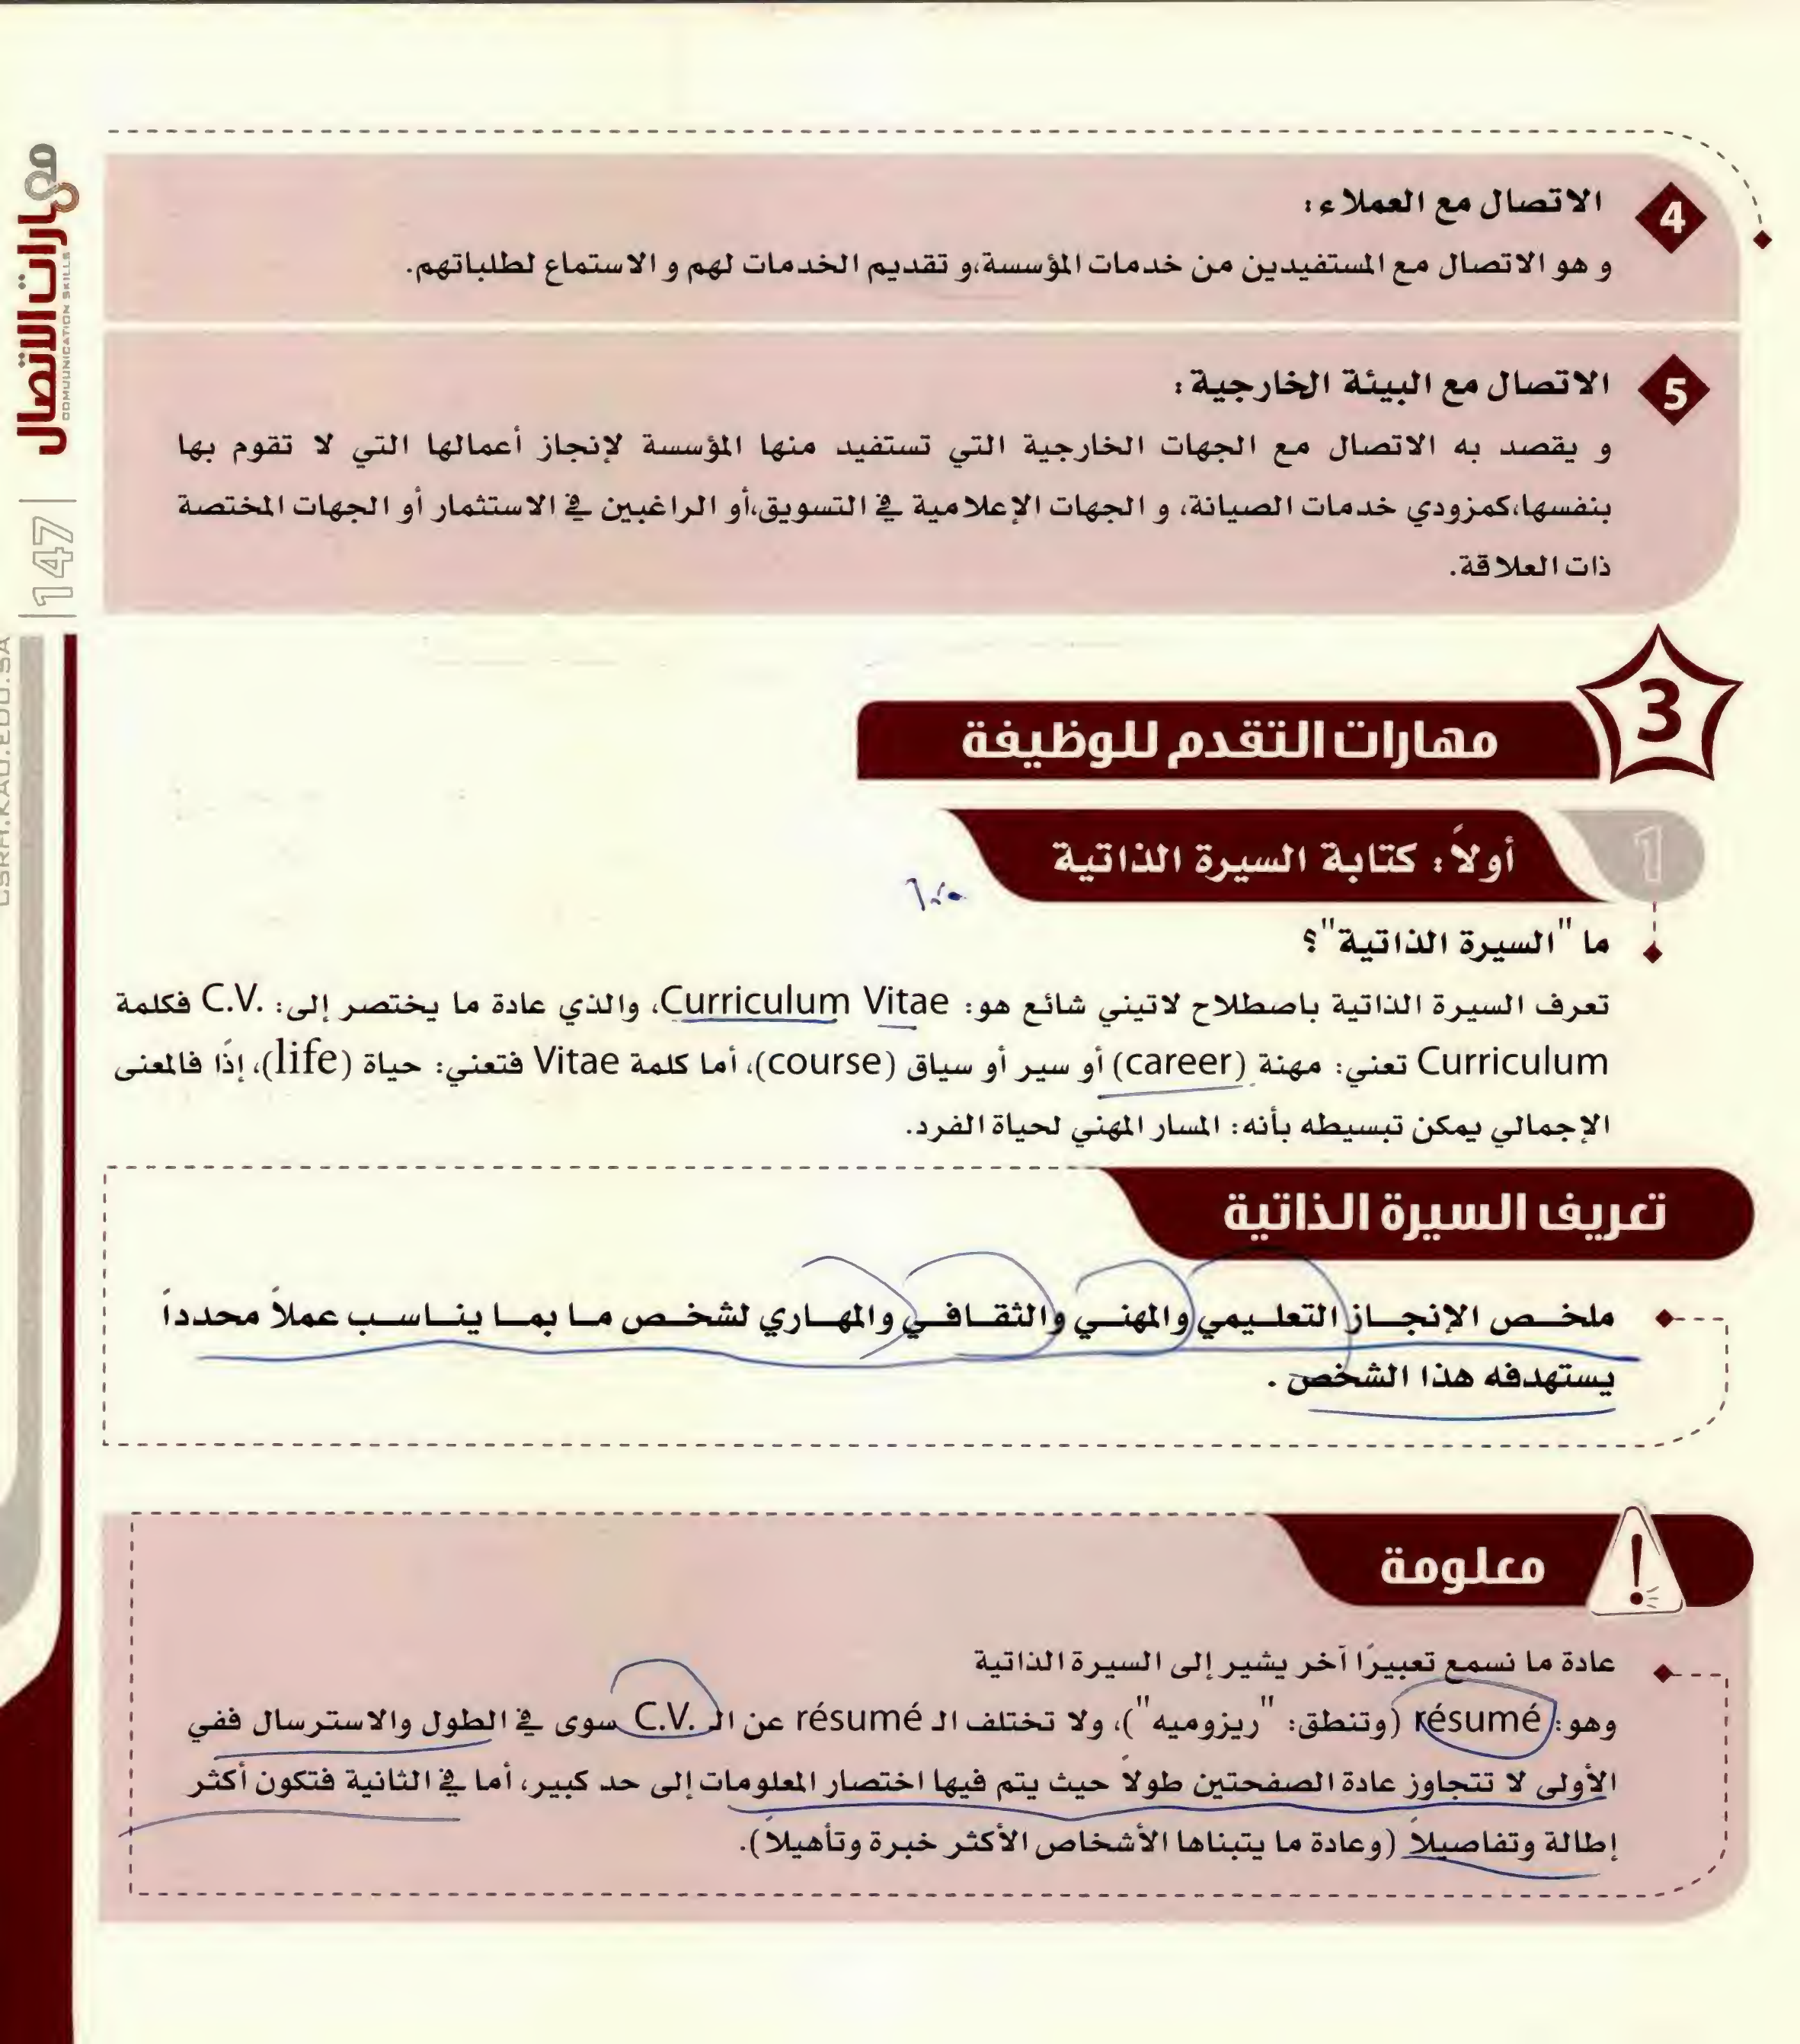 4
الاتصال مع العملاء:
و هو الاتصال مع المستفيدين من خدمات المؤسسة،و تقديم الخدمات لهم و الاستماع لطلباتهم.
5
الاتصال مع البيئة الخارجية:
و يقصد به الاتصال مع الجهات الخارجية التي تستفيد منها المؤسسة لإنجاز أعمالها التي لا تقوم بها
بنفسها،كمزودي خدمات الصيانة، و الجهات الإعلامية في التسويق،أو الراغبين في الاستثمار أو الجهات المختصة
ذات العلاقة.
3
مهارات التقدم للوظيفة
1
أولاً: كتابة السيرة الذاتية
ما "السيرة الذاتية"؟
تعرف السيرة الذاتية باصطلاح لاتيني شائع هو: Curriculum Vitae، والذي عادة ما يختصر إلى: C.V. فكلمة
Curriculum تعني: مهنة (career) أو سير أو سياق (course)، أما كلمة Vitae فتعني: حياة (life)، إذًا فالمعنى
الإجمالي يمكن تبسيطه بأنه: المسار المهني لحياة الفرد.
تعريف السيرة الذاتية
ملخص الإنجاز التعليمي والمهني والثقافي والمهاري لشخص ما بما يناسب عملاً محدداً
يستهدفه هذا الشخص .
معلومة
عادة ما نسمع تعبيرًا آخر يشير إلى السيرة الذاتية
وهو: résumé (وتنطق: "ريزوميه")، ولا تختلف الـ résumé عن الـ C.V. سوى في الطول والاسترسال ففي
الأولى لا تتجاوز عادة الصفحتين طولاً حيث يتم فيها اختصار المعلومات إلى حد كبير، أما في الثانية فتكون أكثر
إطالة وتفاصيلاً (وعادة ما يتبناها الأشخاص الأكثر خبرة وتأهيلاً).
مهارات الاتصال
COMMUNICATION SKILLS
147